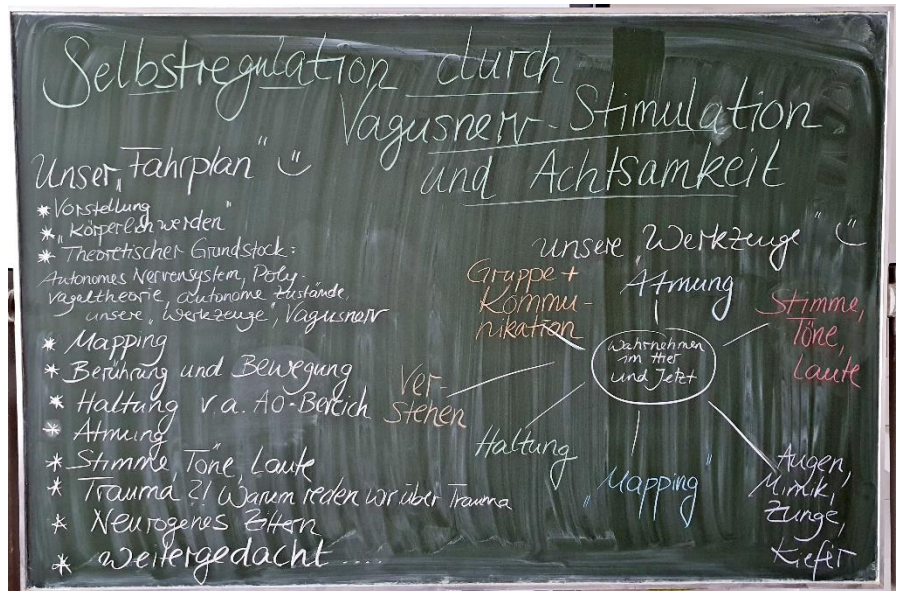 Selbstregulation durch
Vagusnerv-Stimulation
und Achtsamkeit
Unser „Fahrplan" ☺
* Vorstellung
* „Körperlich werden"
* Theoretischer Grundstock:
Autonomes Nervensystem, Poly-
vagaltheorie, autonome Zustände,
unsere „Werkzeuge", Vagusnerv
* Mapping
* Berührung und Bewegung
* Haltung v.a. AO-Bereich
* Atmung
* Stimme, Töne, Laute
* Trauma ?! Warum reden wir über Trauma
* Neurogenes Zittern
* Weitergedacht ....
unsere „Werkzeuge" ☺
Gruppe +
Kommu-
nikation
Atmung
Stimme,
Töne,
Laute
Wahrnehmen
im Hier
und Jetzt
Ver-
stehen
Haltung
„Mapping"
Augen,
Mimik,
Zunge,
Kiefer